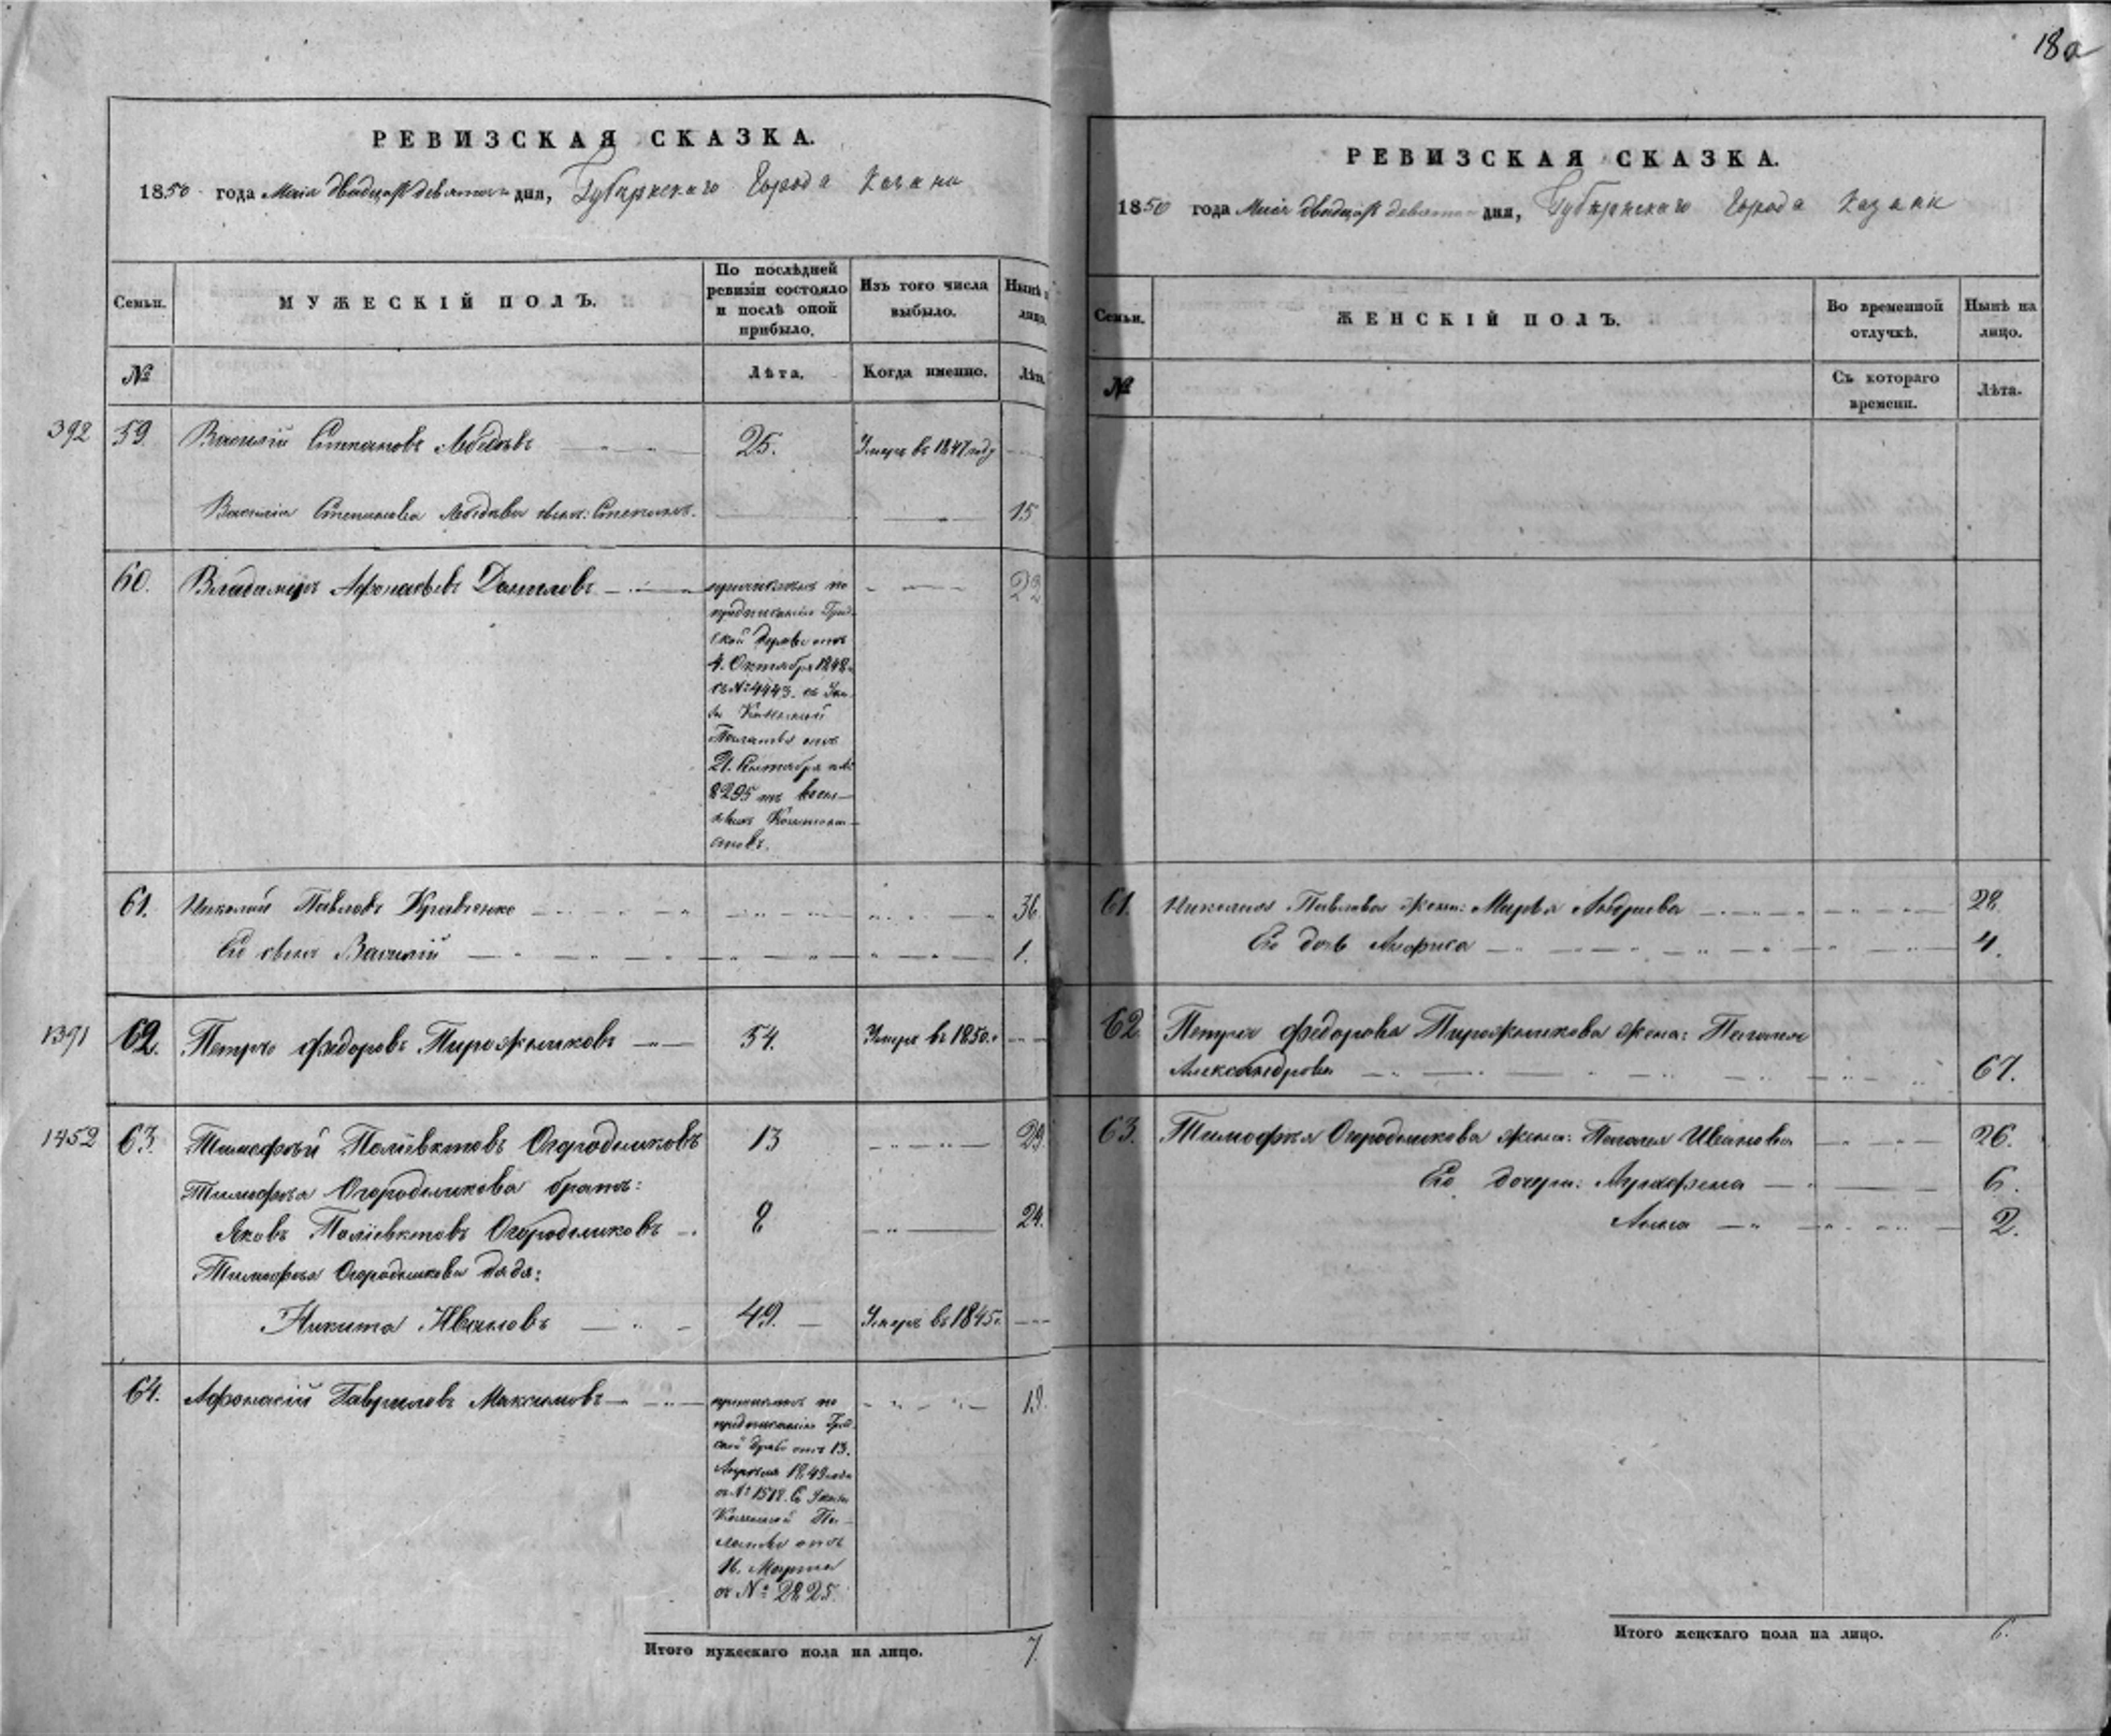 18а
РЕВИЗСКАЯ СКАЗКА.
1850 года Маія двадцать девятаго дня, Губернскаго Города Казани
Семьи.
МУЖЕСКІЙ ПОЛЪ.
По послѣдней
ревизіи состояло
и послѣ оной
прибыло.
Изъ того числа
выбыло.
Нынѣ
лицо.
№
Лѣта.
Когда именно.
Лѣта
392 59. Василій Степановъ Лебедевъ 25. Умеръ въ 1847 году
Василія Степанова Лебедева сынъ: Степанъ. 15
60. Владимиръ Афонасьевъ Даниловъ 22
причисленъ по
предписанію Град-
ской Думы отъ
4. Октября 1848
съ № 4443. съ Ука-
за Казенной
Палаты отъ
21. Сентября за №
8295 изъ воен-
ныхъ Кантони-
стовъ.
61. Николай Павловъ Кравченко 36.
Его сынъ Василій 1.
1391 62. Петръ Федоровъ Пирожниковъ 54. Умеръ въ 1850.
1452 63. Тимофей Поліевктовъ Огородниковъ 13 29.
Тимофея Огородникова братъ:
Яковъ Поліевктовъ Огородниковъ 8 24.
Тимофея Огородникова дядя:
Никита Ивановъ 49. Умеръ въ 1845 г.
64. Афонасій Гавриловъ Максимовъ 18.
причисленъ по
предписанію Град-
ской Думы отъ 13.
Апрѣля 1849 года
за № 1518. Съ Указа
Казенной Па-
латы отъ
16. Марта
за № 2825.
Итого мужескаго пола на лицо. 7.
РЕВИЗСКАЯ СКАЗКА.
1850 года Маія двадцать девятаго дня, Губернскаго Города Казани
Семьи.
ЖЕНСКІЙ ПОЛЪ.
Во временной
отлучкѣ.
Нынѣ на
лицо.
№
Съ котораго
времени.
Лѣта.
61. Николая Павлова жена: Марья Андреева 28.
Его дочь Анфиса 4.
62. Петра Федорова Пирожникова жена: Пелагея
Александрова 67.
63. Тимофея Огородникова жена: Пелагея Иванова 26.
Его дочери: 6.
Анна 2.
Итого женскаго пола на лицо. 6.